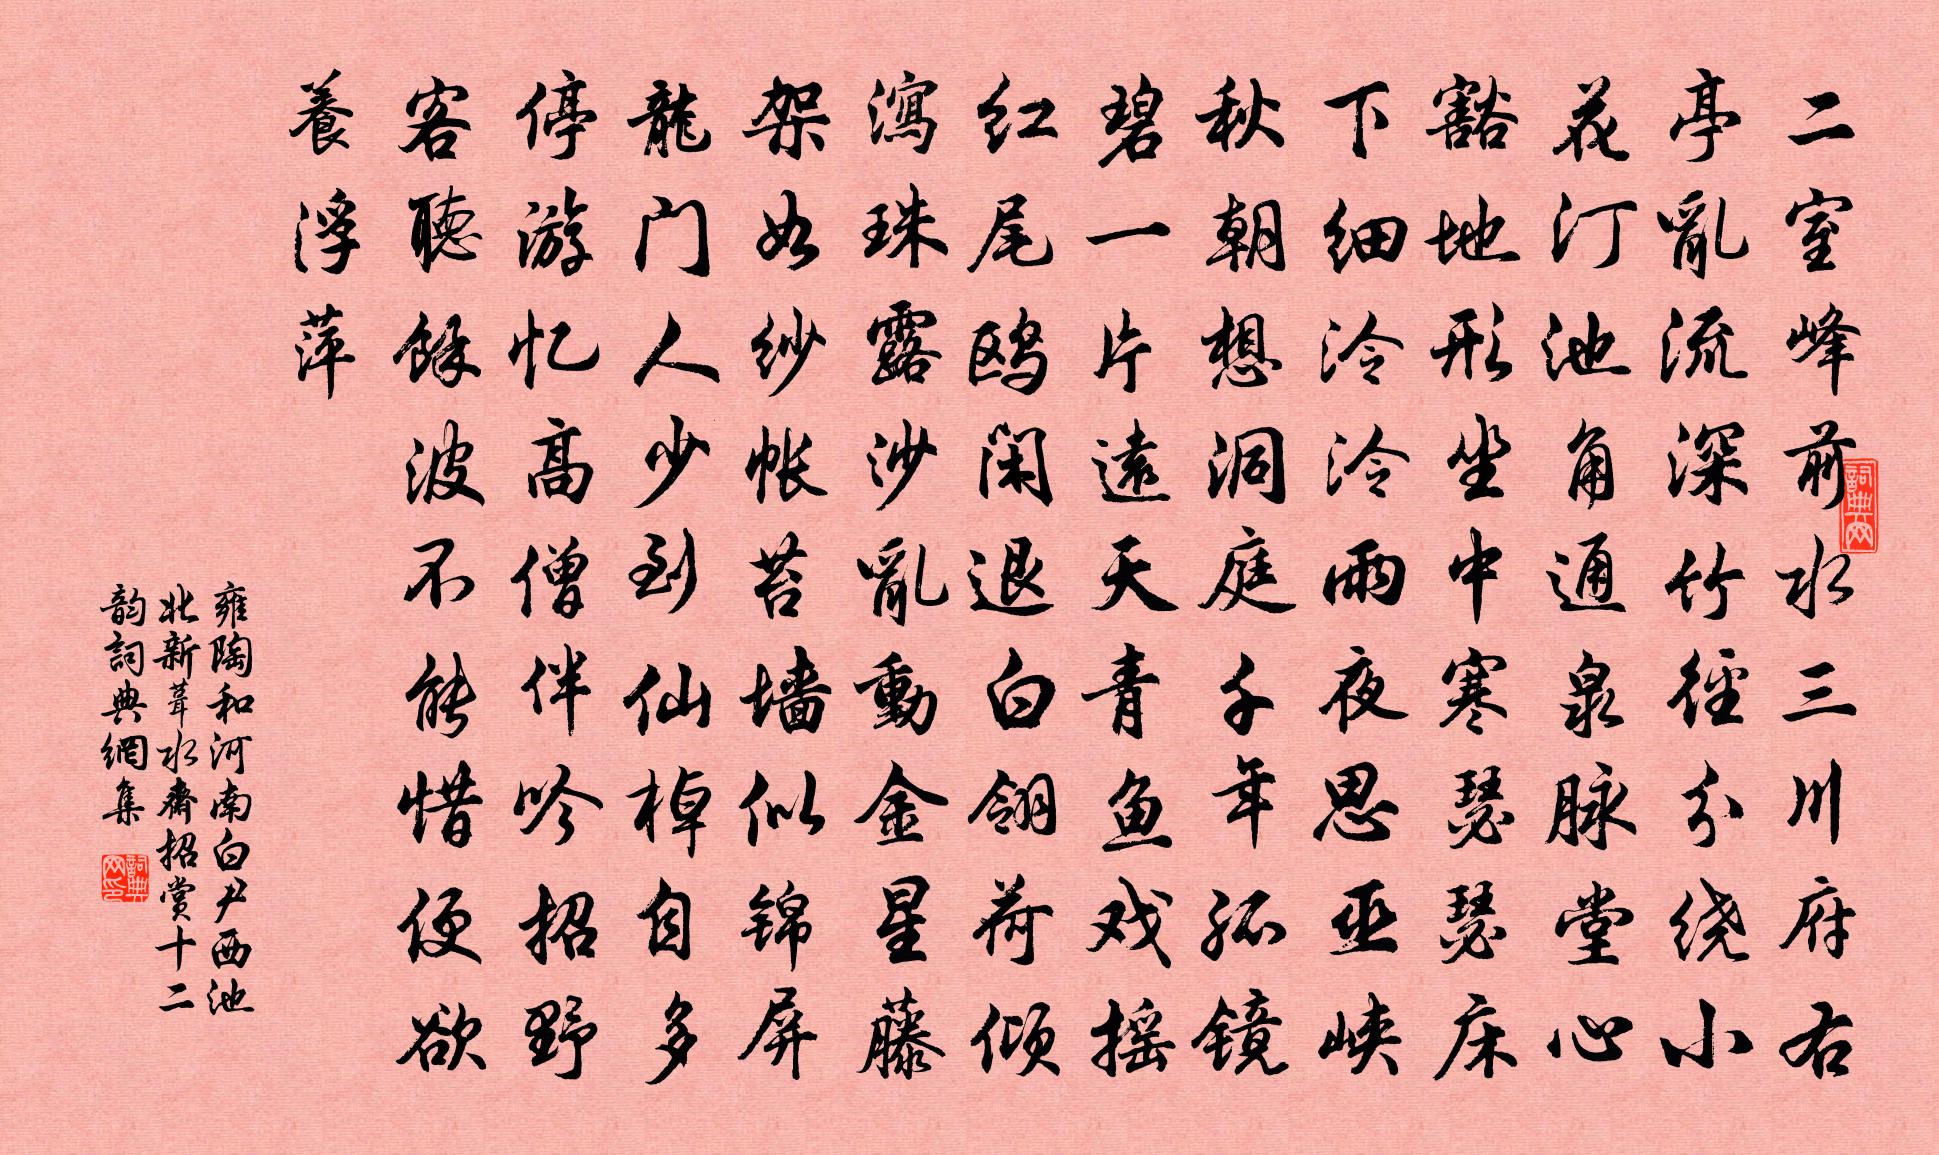 二室峰前水三川府右
亭亂流深竹徑分绕小
花汀池角通泉脉堂心
豁地形坐中寒瑟瑟床
下细泠泠雨夜思巫峡
秋朝想洞庭千年孤镜
碧一片遠天青鱼戏摇
红尾鸥闲退白翎荷倾
瀉珠露沙亂動金星藤
架如纱帐苔墙似锦屏
龍门人少到仙棹自多
停游忆高僧伴吟招野
客聽餘波不能惜便欲
養浮萍
雍陶和河南白尹西池
北新葺水齋招賞十二
韵詞典網集
詞典网
詞典网印